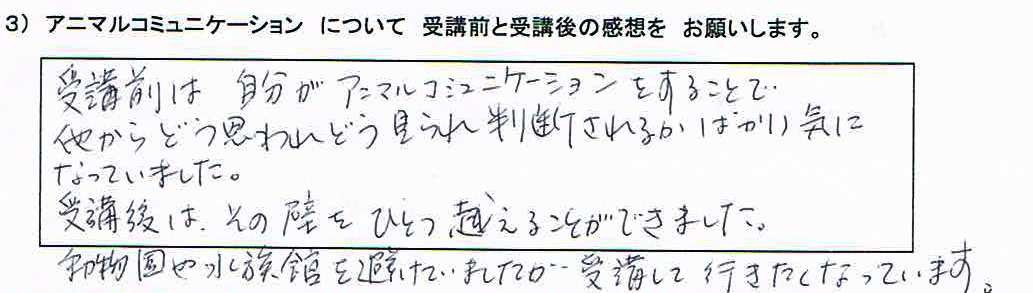 3）アニマルコミュニケーション について 受講前と受講後の感想を お願いします。
受講前は 自分がアニマルコミュニケーションをすることで
他からどう思われどう見られ判断されるかばかり気に
なっていました。
受講後は、その壁をひとつ越えることができました。
動物園や水族館を避けていましたが 受講して行きたくなっています。